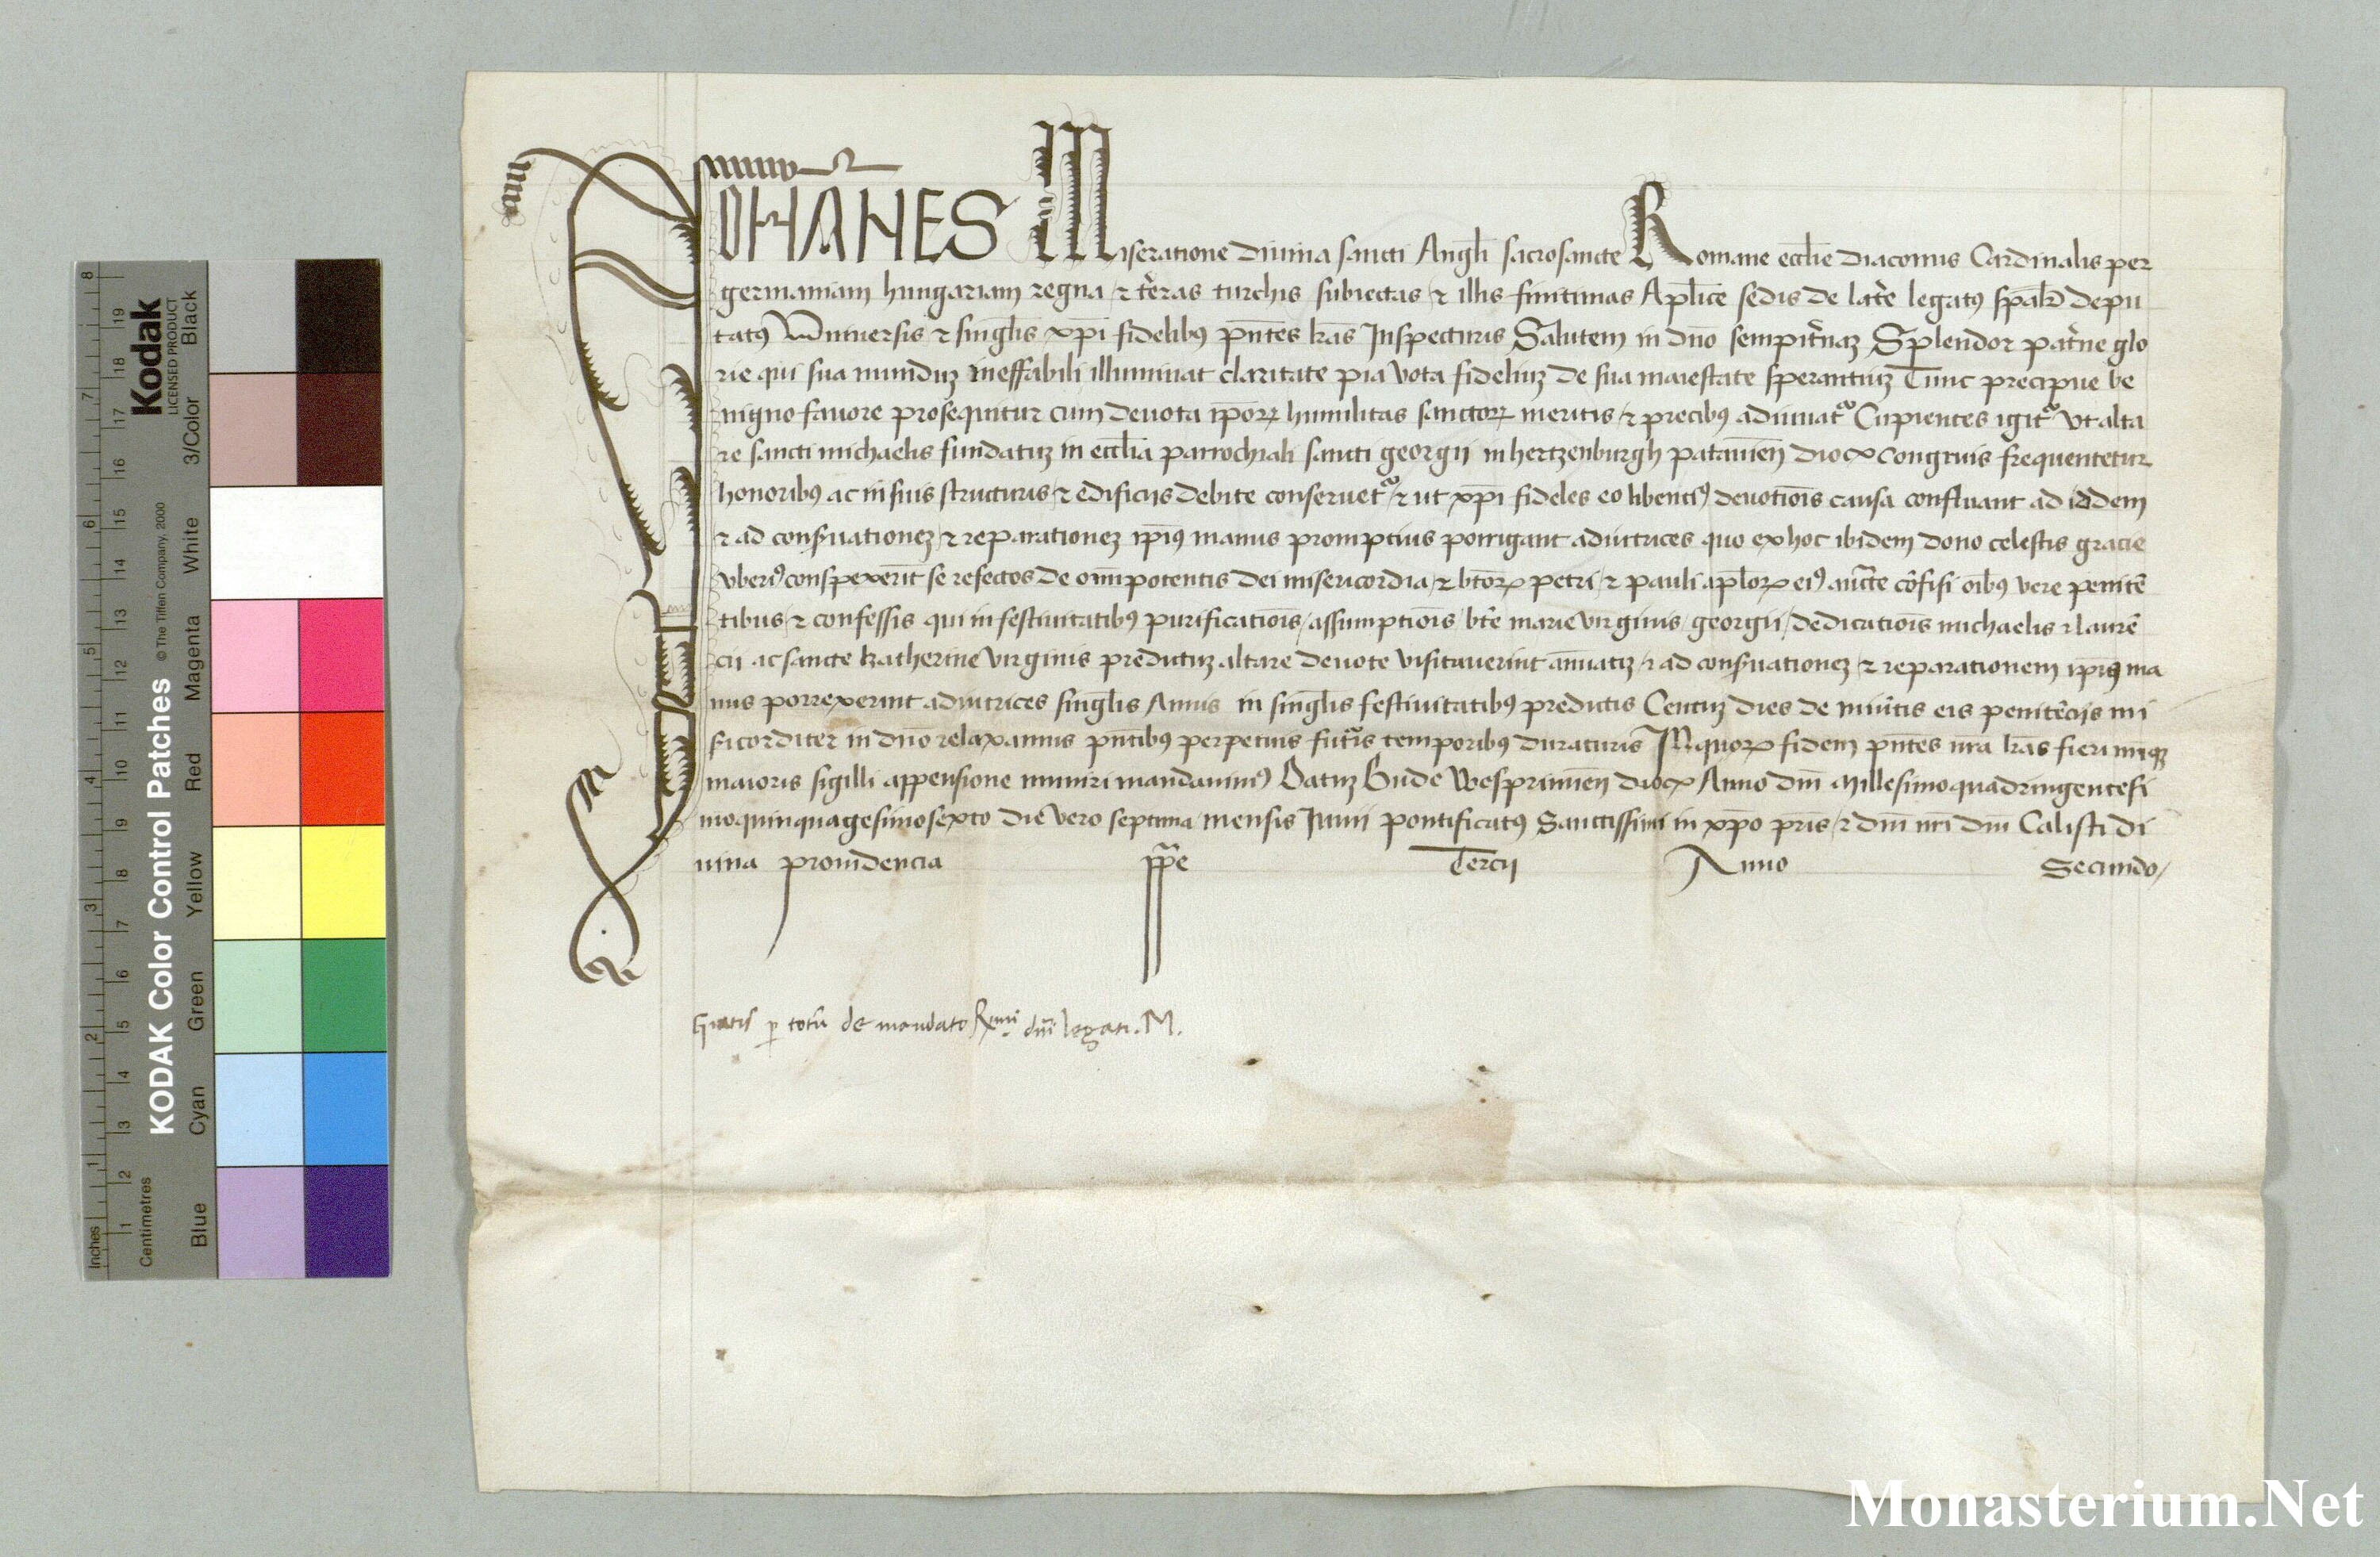 JOHANES Miseratione diuina sancti Angłi sacrosancte Romane ecclie diaconus Cardinalis per
germaniam hungariam regna / et t'ras turchis subiectas et illis finitimas Aplice sedis de lat'e legatꝰ spālr depu
tatꝰ Vniuersis et singlis xpi fidelibꝰ pntes lras Inspecturis Salutem in dno sempit'naʒ Splendor pat'ne glo
rie qui sua munduʒ ineffabili illuminat claritate pia vota fideliuʒ de sua maiestate sperantiuʒ Tunc precipue be
nigno fauore prosequitur cum deuota ipoꝝ humilitas sanctoꝝ meritis / et precibꝰ adiuuat᷑ Cupientes igit᷑ vt alta
re sancti michaelis fundatuʒ in ecclia parrochiali sancti georgii in hertzenburgh patauien dioc congruis frequentetur
honoribꝰ ac in suis structuris / et edificijs debite conseruet᷑ / et ut xpi fideles eo libentiꝰ deuotiois causa confluant ad idem
et ad conseruationeʒ / et reparationeʒ ipiꝰ manus promptius porrigant adiutrices quo ex hoc ibidem dono celestis gracie
vberiꝰ conspexerit se refectos de omipotentis dei misericordia / et btoꝝ petri / et pauli aploꝝ eiꝰ aucte cōfisi oibꝰ vere penitē
tibus / et confessis qui in festiuitatibꝰ purificatiois / assumptiois / bte marie virginis / georgii / dedicatiois michaelis et laurē
cii ac sancte katherine virginis predictuʒ altare deuote visitauerint annuatiʒ / et ad conseruationeʒ / et reparationem ipius ma
nus porrexerint adiutrices singlis Annis in singlis festiuitatibꝰ predictis Centuʒ dies de iniūctis eis penitēcijs mi
sicorditer in dno relaxamus pntibꝰ perpetuis futuris temporibꝰ duraturis In quoꝝ fidem pntes nra lras fieri nriqʒ
maioris sigilli appensione muniri mandauimꝰ Datuʒ Bude Wesprimien dioc Anno dni Millesimoquadringentesi
moquinquagesimosexto die vero septima mensis Junii pontificatꝰ Sanctissimi in xpo pris / et dni nri dni Calisti di
uina prouidencia ppe Tercij Anno Secundo /
Gratis p totū de mandato Rmi dni legati. M.
KODAK Color Control Patches
Kodak
LICENSED PRODUCT
© The Tiffen Company, 2000
Inches
Centimetres
Blue Cyan Green Yellow Red Magenta White 3/Color Black
1 2 3 4 5 6 7 8
1 2 3 4 5 6 7 8 9 10 11 12 13 14 15 16 17 18 19
Monasterium.Net